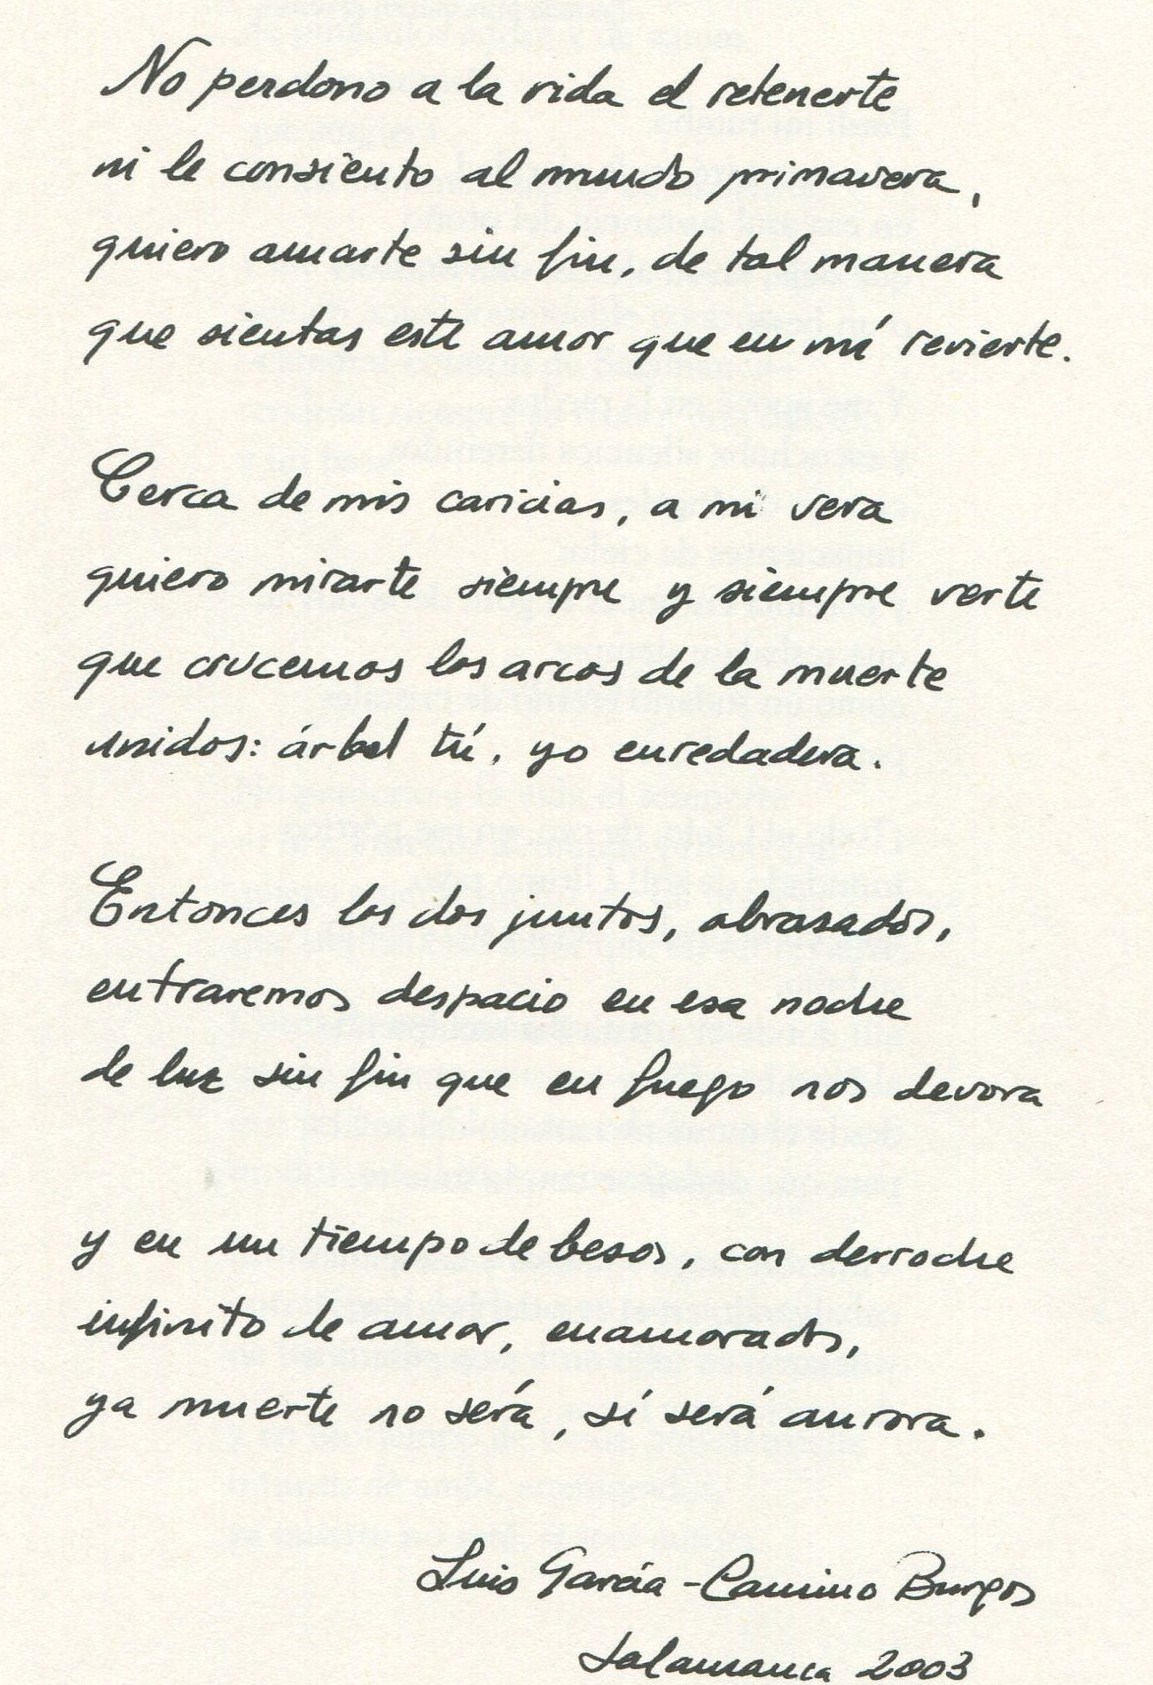 No perdono a la vida el retenerte
ni le consiento al mundo primavera,
quiero amarte sin fin, de tal manera
que sientas este amor que en mí revierte.
Cerca de mis caricias, a mi vera
quiero mirarte siempre y siempre verte
que crucemos los arcos de la muerte
unidos: árbol tú, yo enredadera.
Entonces los dos juntos, abrasados,
entraremos despacio en esa noche
de luz sin fin que en fuego nos devora
y en un tiempo de besos, con derroche
infinito de amor, enamorados,
ya muerte no será, sí será aurora.
Luis García-Camino Burgos
Salamanca 2003